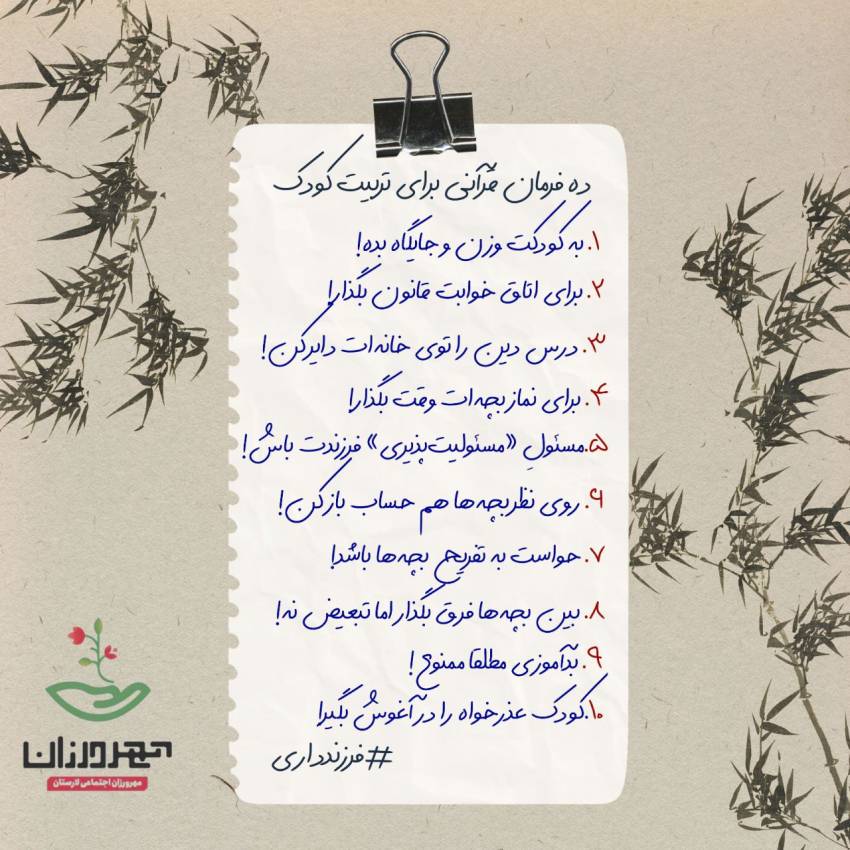 ده فرمان قرآنی برای تربیت کودک
۱. به کودکت وزن و جایگاه بده!
۲. برای اتاق خوابت قانون بگذار!
۳. درس دین را توی خانه‌ات دایر کن!
۴. برای نماز بچه‌ات وقت بگذار!
۵. مسئولِ «مسئولیت‌پذیری» فرزندت باش!
۶. روی نظر بچه‌ها هم حساب باز کن!
۷. حواست به تفریح بچه‌ها باشد!
۸. بین بچه‌ها فرق بگذار اما تبعیض نه!
۹. بدآموزی مطلقا ممنوع!
۱۰. کودک عذرخواه را در آغوش بگیر!
#فرزندداری
مهرورزان
مهرورزان اجتماعی لارستان